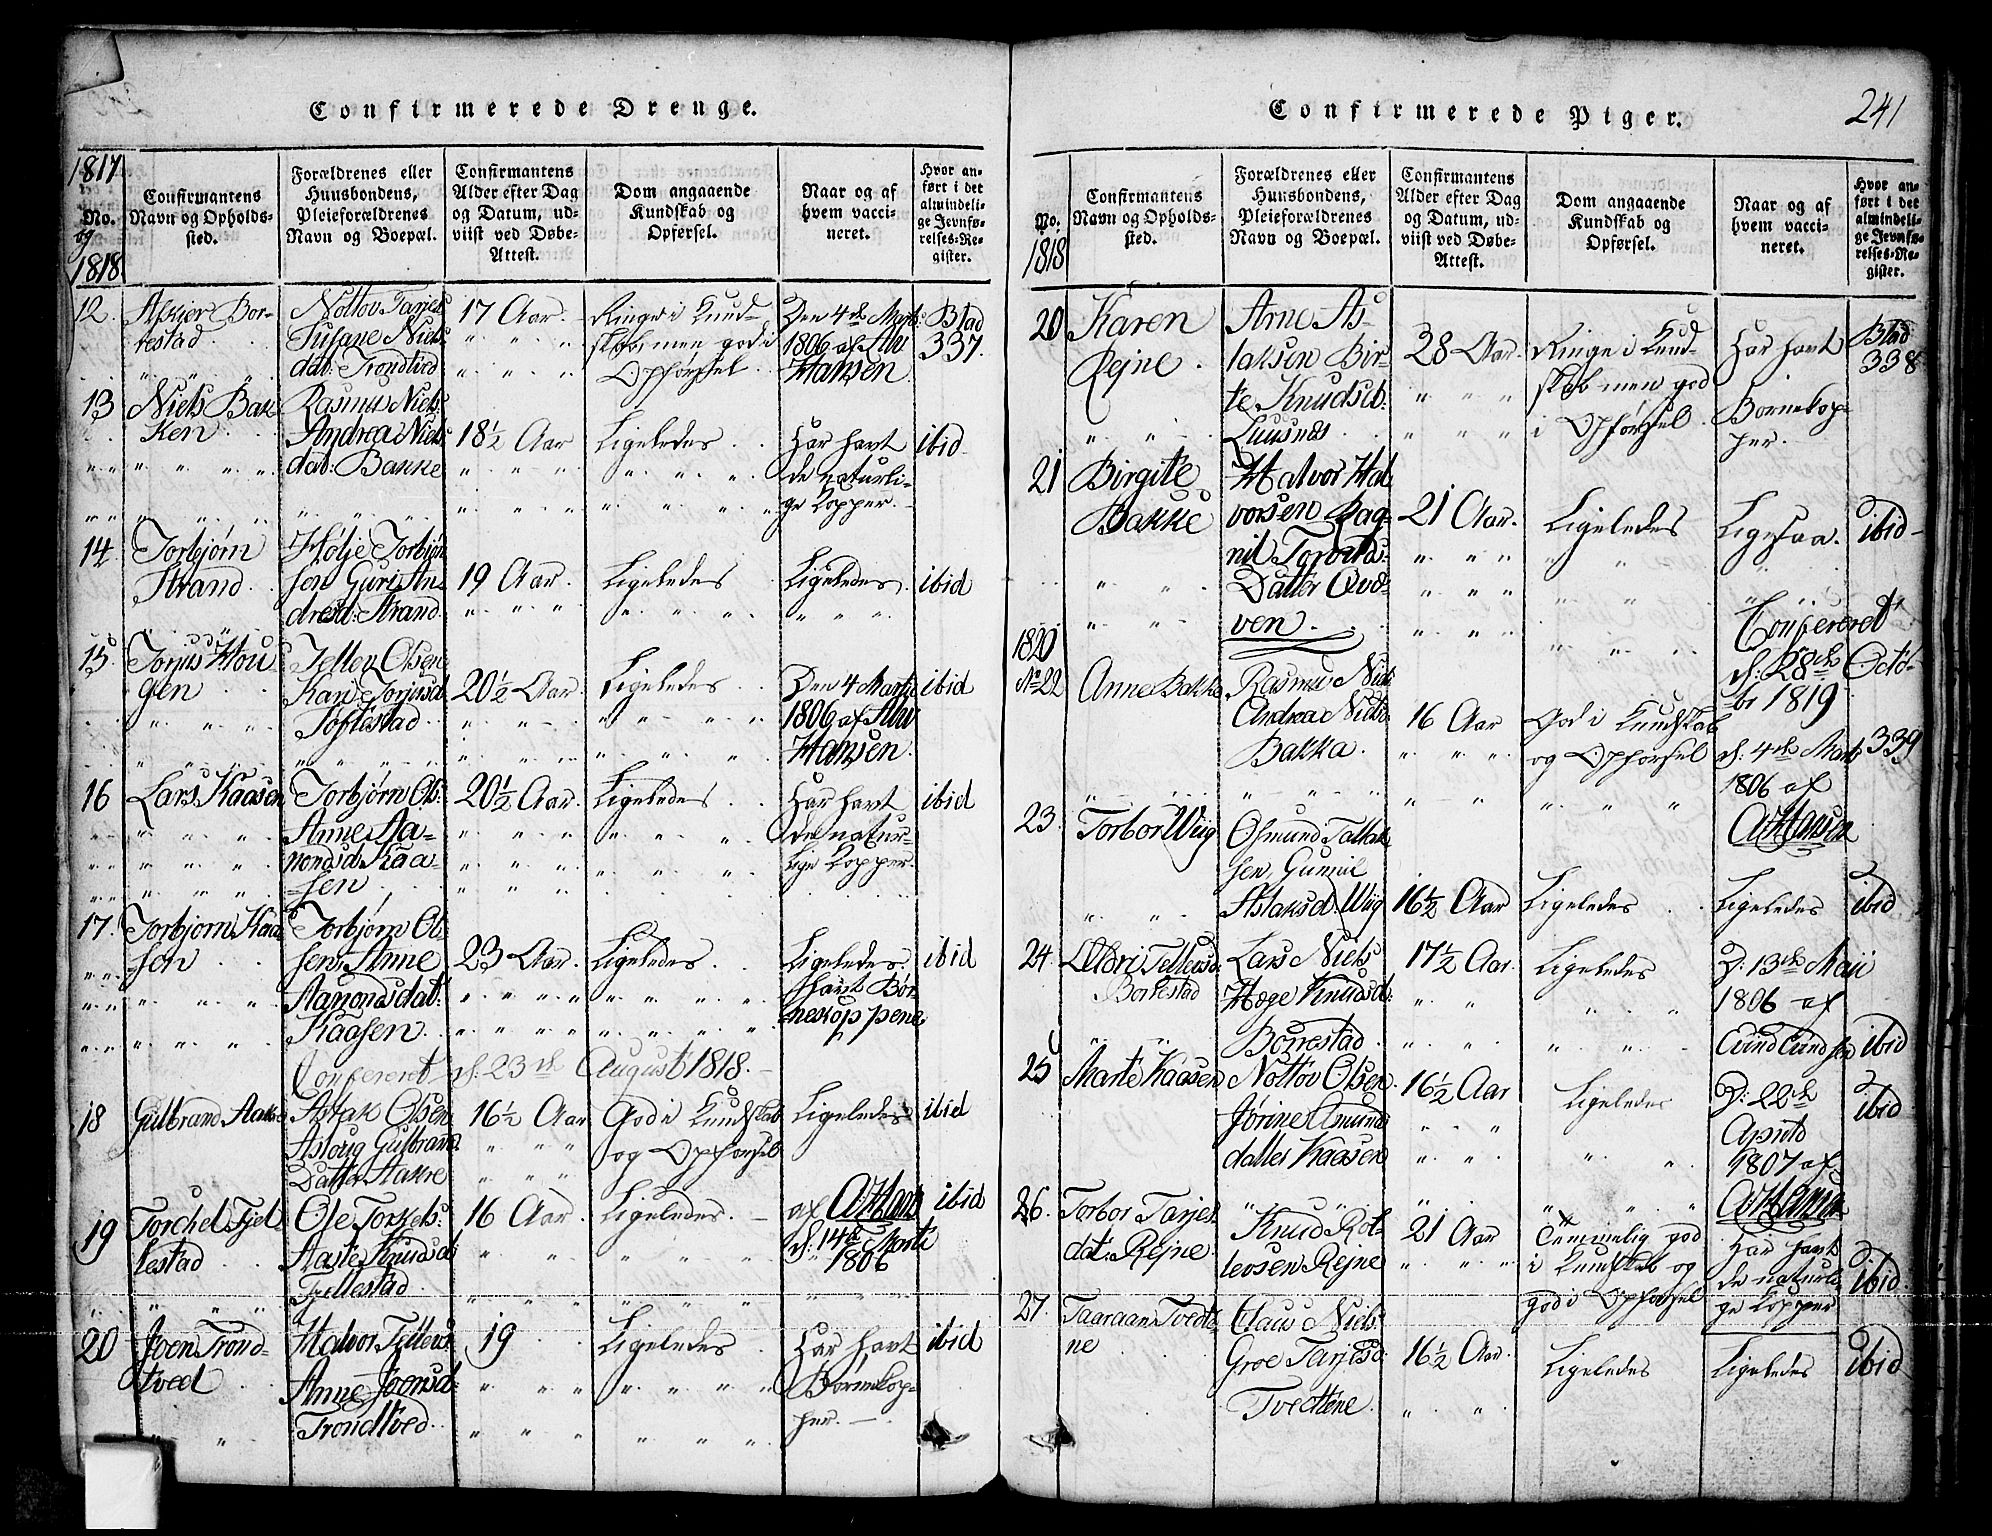 Confirmerede Drenge.
1817
No.
og
1818
Confirmantens
Navn og Opholds-
sted.
Forældrenes eller
Huusbondens,
Pleieforældrenes
Navn og Boepæl.
Confirmantens
Alder efter Dag
og Datum, ud-
viist ved Døbe-
Attest.
Dom angaaende
Kundskab og
Opførsel.
Naar og af
hvem vacci-
neret.
Hvor an-
ført i det
almindeli-
ge Jevnfø-
relses-Re-
gister.
12.
Bor-
kestad
Nottov Tarjes:
Susane Niels
dat: Trondtved
17 Aar.
Ringe i Kund-
skab, men god i
Opførsel
Den 4de Marti
1806 af Alv
Hansen
Blad
337.
13
Niels Bak
ken
Rasmus Niels:
Andrea Niels
dat: Bakke
18½ Aar
Ligeledes
Har havt
de naturli-
ge Kopper.
ibid
14.
Torbjørn
Strand
Hølje Torbjøn
sen Guri An-
dresd: Strand
19 Aar.
Ligeledes
Ligeledes
ibid
15.
Torjus Hou
gen
Tellev Olsen
Kari Torjusd
Toftestad
20½ Aar.
Ligeledes
Den 4 Martii
1806 af Alv
Hansen
ibid
16
Lars Kaasen
Torbjørn Ols:
Anne Aa-
monds d Kaa-
sen
20½ Aar.
Ligeledes
Har havt
de natur-
lige Kopper.
ibid
17.
Torbjorn Kaa
sen
Torbjørn Ol
sen Anne
Aamonds dat:
Kaasen
23 Aar.
Ligeledes
Ligeledes
havt Bør
neskoppene
ibid
Confereret d: 23de August 1818.
18
Gulbrand Aakre
Aslak Olsen
Asloug Gulbrands
Datter Aakre
16½ Aar
God i Kundskab
og Opførsel
Ligeledes
ibid
19
Torchel Fjel
lestad
Ole Torkels:
Aaste Knudsd:
Fjellestad
16 Aar
Ligeledes.
af A: Hans
d: 14de Marti
1806
ibid
20
Joen Trond-
tved
Halvor Tellevs
Anne Joensd:
Trondtved
19
Ligeledes
Har havt
Bornekop-
per.
ibid
Confirmerede Piger.
241
No.
1818
Confirmantens
Navn og Opholds-
sted.
Forældrenes eller
Huusbondens,
Pleieforældrenes
Navn og Boepæl.
Confirmantens
Alder efter Dag
og Datum, ud-
viist ved Døbe-
Attest.
Dom angaaende
Kundskab og
Opførsel.
Naar og af
hvem vacci-
neret.
Hvor an-
ført i det
almindeli-
ge Jevnfø-
relses-Re-
gister.
20
Karen
Rejne
Arne As-
laksen Bir-
te Knudsd:
Luusnes
28 Aar.
Ringe i Kund-
skab men god
i Opførsel
Har havt
Bornekop-
per.
Blad
338
21
Birgite
Bakke
Halvor Hal
vorsen Rag-
nil
Datter Qvd
ven
21 Aar.
Ligeledes
Ligesaa.
ibid
Confereret
d: 28de Octo-
br 1819
1820
No 22
Anne Bakke
Rasmus Niel
Andrea Niels
Bakka.
16 Aar
God i Kundskab
og Opførsel
d: 4de Marti
1806 af
A: Hansen
339
23.
Torbor Wiig
Osmund Tallak
sen, Gunnil
Aslaksd. Wiig
16½ Aar
Ligeledes
Ligeledes
ibid
24.
Ældri Tellevsd:
Borkestad
Lars Niels
Hæge Knudsd:
Borrestad
17½ Aar.
Ligeledes
D: 13de Maii
1806 af
Eivind Eivindsen
ibid
25
Marte Kaasen
Nottov Olsen
Jørine Amund
datter Kaasen
16½ Aar
Ligeledes
D: 22de
Aprili
1807 af
A: Hansen
ibid
26.
Torbor Tarjes
dat: Rejne
Knud Rol-
levsen Rejne
21 Aar
Temmelig god
i Kundskab og
god i Opførsel
Har havt
de naturli-
ge Kopper
ibid
27.
Taaraan Tvedte
ne
Claus Niels
Groe Tarjesd:
Tvedtene
16½ Aar.
Ligeledes
Ligeledes
ibid